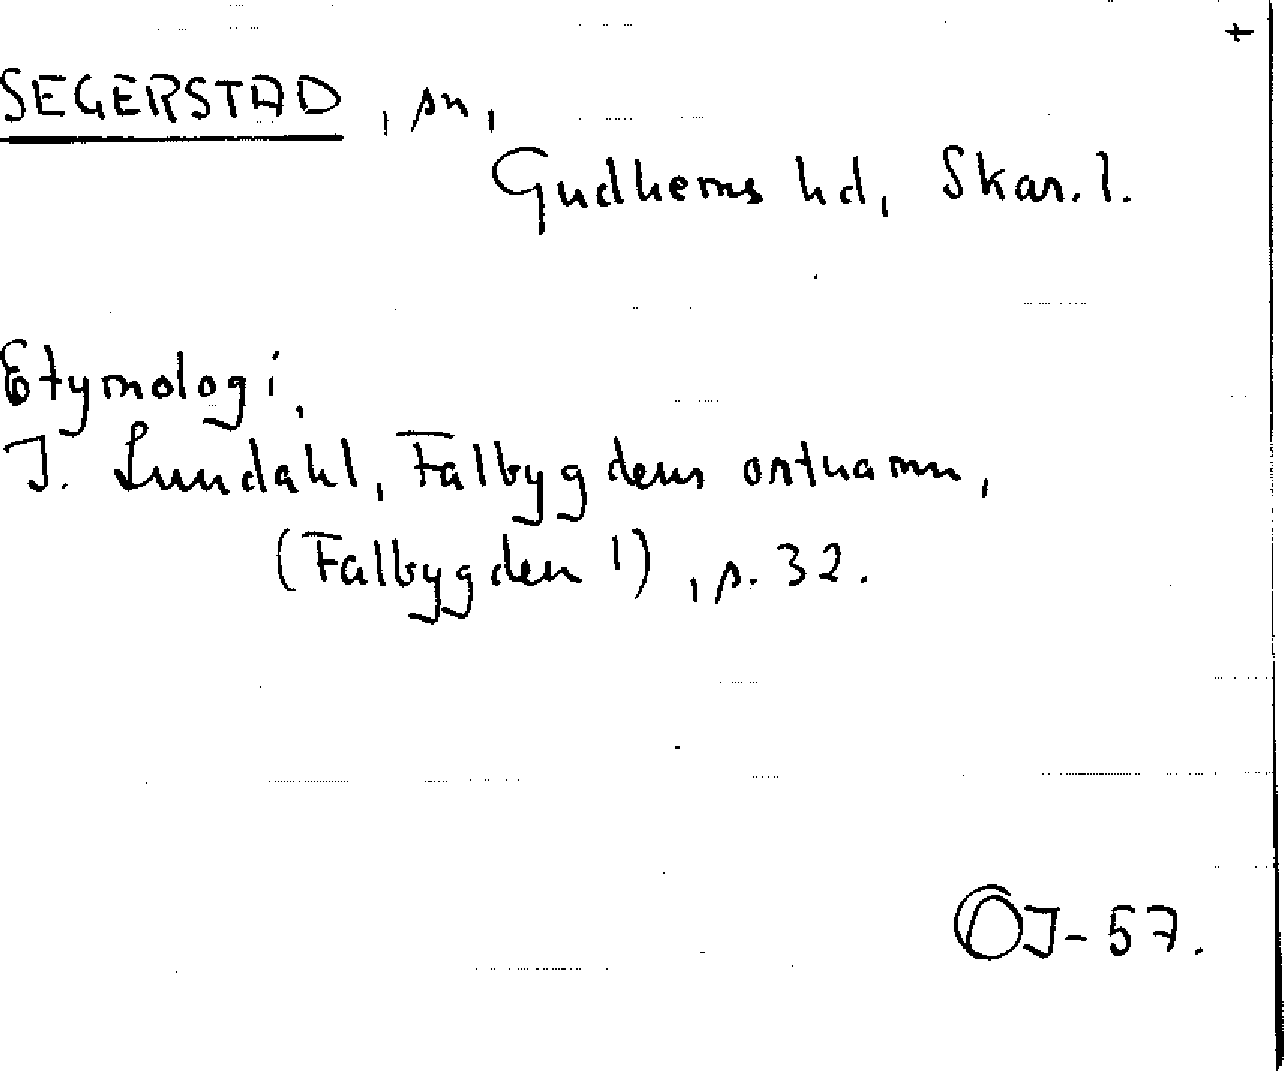 +
SEGERSTAD, sn,
Gudhems hd, Skar. l.
Etymologi,
I. Lundahl, Falbygdens ortnamn,
(Falbygden 1), s. 32.
OJ-57.